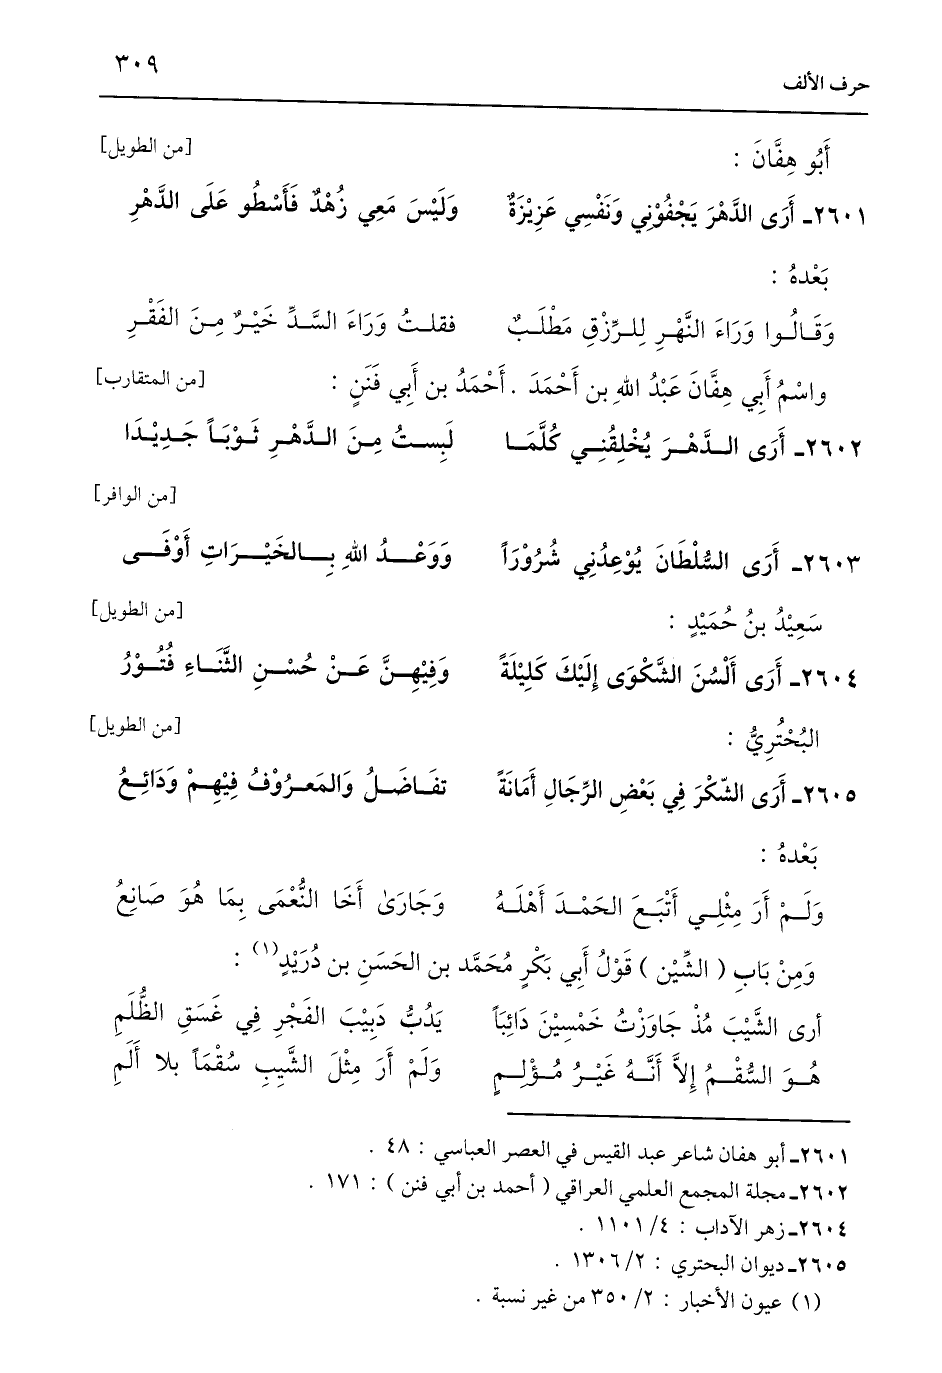 حرف الألف ٣٠٩
أَبُو هِفَّانَ : [من الطويل]
٢٦٠١ـ أَرَى الدَّهْرَ يَجْفُوْنِي وَنَفْسِي عَزِيْزَةٌ وَلَيْسَ مَعِي زُهْدٌ فَأَسْطُو عَلَى الدَّهْرِ
بَعْدهُ :
وَقَـالُـوا وَرَاءَ النَّهْرِ لِلـرِّزْقِ مَطْلَـبٌ فقلـتُ وَرَاءَ السَّـدِّ خَيْـرٌ مِـنَ الفَقْـرِ
واسْمُ أَبِي هِفَّانَ عَبْدُ اللهِ بن أَحْمَدَ . أَحْمَدُ بن أَبِي فَنَنٍ : [من المتقارب]
٢٦٠٢ـ أَرَى الـدَّهْـرَ يُخْلِقُنِـي كُلَّمَـا لَبِسـتُ مِـنَ الـدَّهْـرِ ثَـوْبَـاً جَـدِيْـدَا
[من الوافر]
٢٦٠٣ـ أَرَى السُّلْطَانَ يُوْعِدُنِي شُرُوْرَاً وَوَعْـــدُ اللهِ بِــالخَيْــرَاتِ أَوْفَــى
سَعِيْدُ بنُ حُمَيْدٍ : [من الطويل]
٢٦٠٤ـ أَرَى أَلْسُنَ الشَّكْوَى إِلَيْكَ كَلِيْلَةً وَفِيْهِـنَّ عَـنْ حُسْـنِ الثَّنَـاءِ فُتُـوْرُ
البُحْتُرِيُّ : [من الطويل]
٢٦٠٥ـ أَرَى الشّكْرَ فِي بَعْضِ الرِّجَالِ أَمَانَةً تفَـاضَـلُ وَالمَعـرُوْفُ فِيْهِـمْ وَدَائِـعُ
بَعْدهُ :
وَلَـمْ أَرَ مِثْلِـي أَتْبَـعَ الحَمْـدَ أَهْلَـهُ وَجَارَىٰ أَخَا النُّعْمَى بِمَا هُوَ صَانِعُ
وَمِنْ بَابِ ( الشِّيْن ) قَوْلُ أَبِي بَكْرٍ مُحَمَّد بن الحَسَنِ بن دُرَيْدٍ(١) :
أرى الشَّيْبَ مُذْ جَاوَزْتُ خَمْسِيْنَ دَائِبَاً يَدُبُّ دَبِيْبَ الفَجْرِ فِي غَسَقِ الظُّلَمِ
هُـوَ السُّقْـمُ إِلاَّ أَنَّـهُ غَيْـرُ مُـؤْلِـمٍ وَلَمْ أَرَ مِثْلَ الشَّيبِ سُقْمَاً بلا أَلَمِ
٢٦٠١ـ أبو هفان شاعر عبد القيس في العصر العباسي : ٤٨ .
٢٦٠٢ـ مجلة المجمع العلمي العراقي ( أحمد بن أبي فنن ) : ١٧١ .
٢٦٠٤ـ زهر الآداب : ٤/ ١١٠١ .
٢٦٠٥ـ ديوان البحتري : ٢/ ١٣٠٦ .
(١) عيون الأخبار : ٢/ ٣٥٠ من غير نسبة .